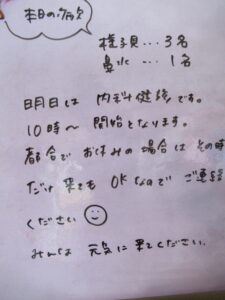 本日のお病欠
様子見…3名
鼻水…1名
明日は 内科健診です。
10時〜 開始となります。
都合で お休みの場合は その時
だけ 来ても OKなので ご連絡
ください
みんな 元気に 来てください。